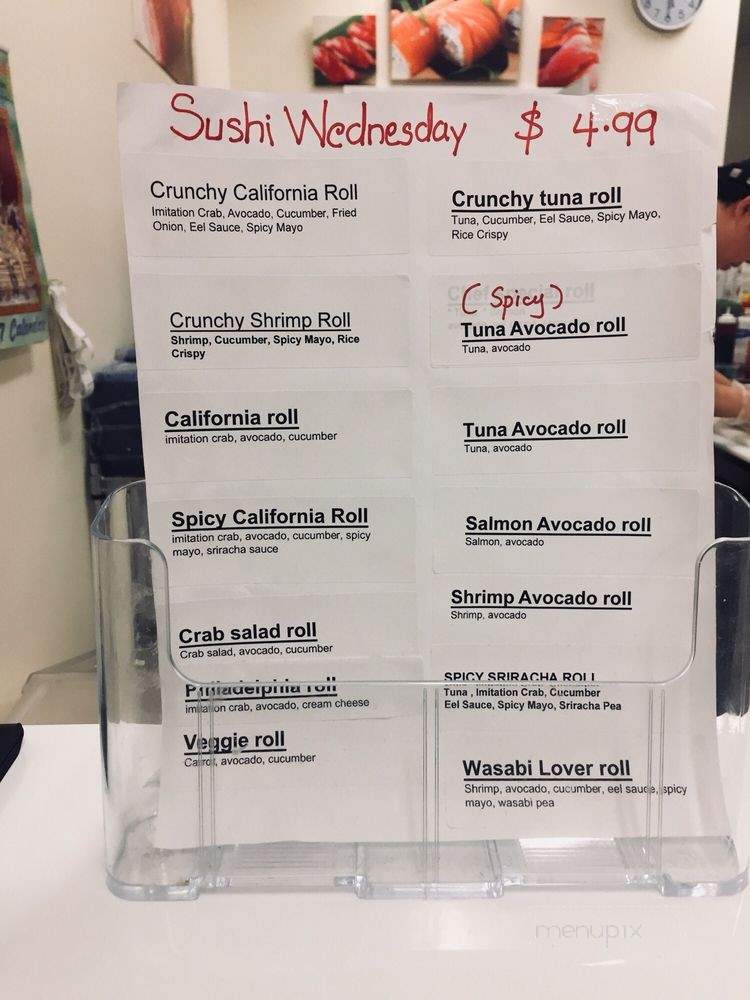 Sushi Wednesday $ 4.99
Crunchy California Roll
Imitation Crab, Avocado, Cucumber, Fried
Onion, Eel Sauce, Spicy Mayo
Crunchy Shrimp Roll
Shrimp, Cucumber, Spicy Mayo, Rice
Crispy
California roll
imitation crab, avocado, cucumber
Spicy California Roll
imitation crab, avocado, cucumber, spicy
mayo, sriracha sauce
Crab salad roll
Crab salad, avocado, cucumber
Philadelphia roll
imitation crab, avocado, cream cheese
Veggie roll
Carrot, avocado, cucumber
Crunchy tuna roll
Tuna, Cucumber, Eel Sauce, Spicy Mayo,
Rice Crispy
(Spicy)
Tuna Avocado roll
Tuna, avocado
Tuna Avocado roll
Tuna, avocado
Salmon Avocado roll
Salmon, avocado
Shrimp Avocado roll
Shrimp, avocado
SPICY SRIRACHA ROLL
Tuna , Imitation Crab, Cucumber
Eel Sauce, Spicy Mayo, Sriracha Pea
Wasabi Lover roll
Shrimp, avocado, cucumber, eel sauce, spicy
mayo, wasabi pea
menupix